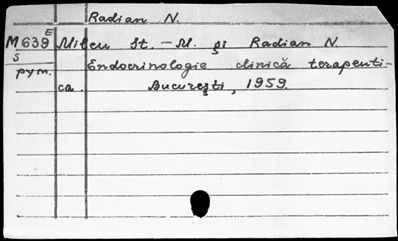 Radian N.
M639E Milcu St.-M. și Radian N.
S
Endocrinologie clinică terapenti-
рум.
ca. București, 1959.